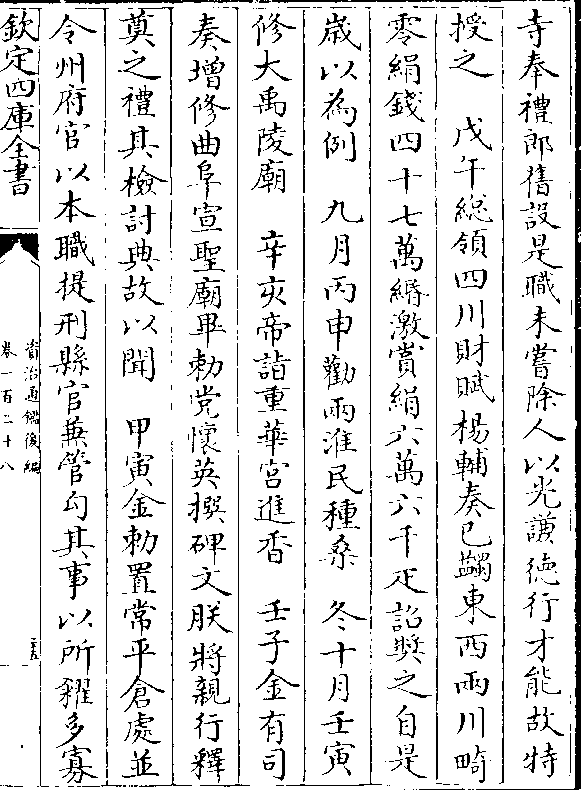 寺奉禮郎舊設是職未嘗除人以光謙徳行才能故特
授之　戊午総領四川財賦楊輔奏已蠲東西兩川畸
零絹錢四十七萬緡激賞絹六萬六千疋詔奬之自是
嵗以為例　九月丙申勸兩淮民種桑　冬十月壬寅
修大禹陵廟　辛亥帝詣重華宮進香　壬子金有司
奏增修曲阜宣聖廟畢勅党懷英撰碑文朕將親行釋
奠之禮其檢討典故以聞　甲寅金勅置常平倉處並
令州府官以本職提刑縣官兼管勾其事以所糴多寡
欽定四庫全書
資治通鑑後編
卷一百二十八
二十五